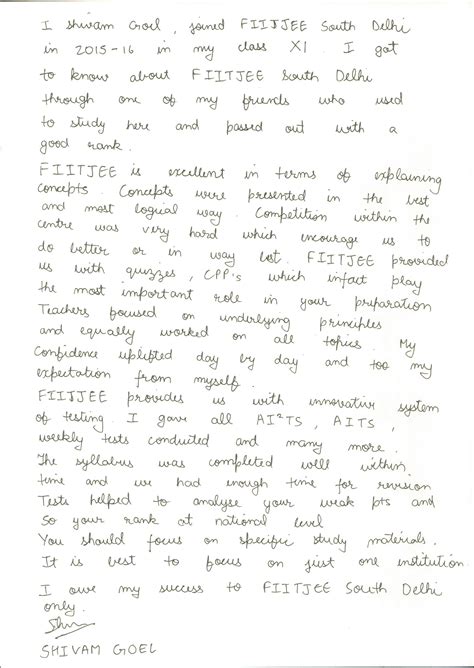 I shivam Goel, joined FIITJEE South Delhi
in 2015-16 in my class XI. I got
to know about FIITJEE South Delhi
through one of my friends who used
to study here and passed out with a
good rank.
FIITJEE is excellent in terms of explaining
concepts. Concepts were presented in the best
and most logical way. Competition within the
centre was very hard which encourage us to
do better or in way bst. FIITJEE provided
us with quizzes, CPP's which infact play
the most important role in your preparation
Teachers focused on underlying principles
and equally worked on all topics. My
confidence uplifted day by day and too my
expectation from myself.
FIITJEE provides us with innovative system
of testing. I gave all AI²TS, AITS,
weekly tests conducted and many more.
The syllabus was completed well within
time and we had enough time for revision
Tests helped to analyse your weak pts and
So your rank at national level
You should focus on specific study materials.
It is best to focus on just one institution.
I owe my success to FIITJEE South Delhi
only.
SHIVAM GOEL